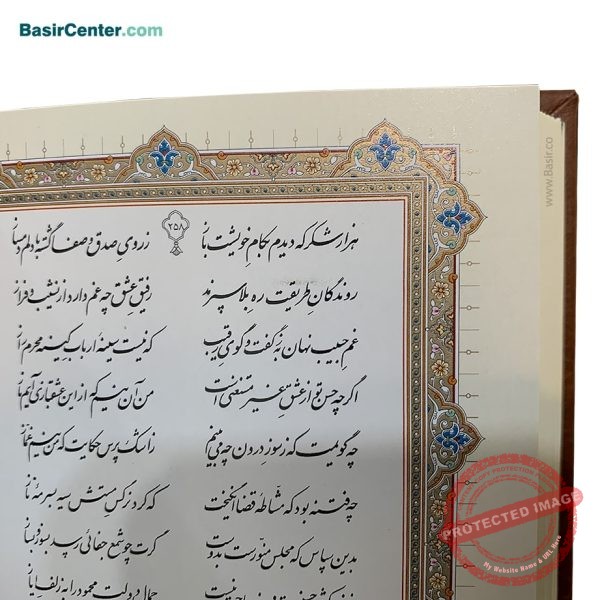 BasirCenter.com
۲۵۸
هزار شکر که دیدم بکام خویشت باز ز روی صدق و صفا گشته با دلم دمساز
روندگان طریقت ره بلا سپرند رفیق عشق چه غم دارد از نشیب و فراز
غم حبیب نهان به ز گفت و گوی رقیب که نیست سینه ارباب کینه محرم راز
اگر چه حسن تو از عشق غیر مستغنی است من آن نیم که از این عشقبازی آیم باز
چه گویمت که ز سوز درون چه می بینم ز اشک پرس حکایت که من نیم غماز
چه فتنه بود که مشاطه قضا انگیخت که کرد نرگس مستش سیه بسرمه ناز
بدین سپاس که مجلس منورست بدوست گرت چو شمع جفائی رسد بسوز و بساز
جمال دولت محمود را به زلف ایاز
www.Basir.co
PROTECTED IMAGE
My Website Name & URL Here